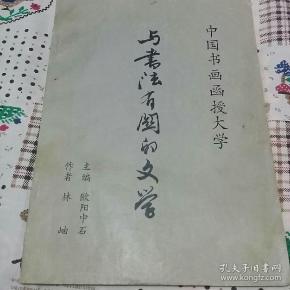 中国书画函授大学
与书法有关的文学
主编 欧阳中石
作者 林岫
孔夫子旧书网